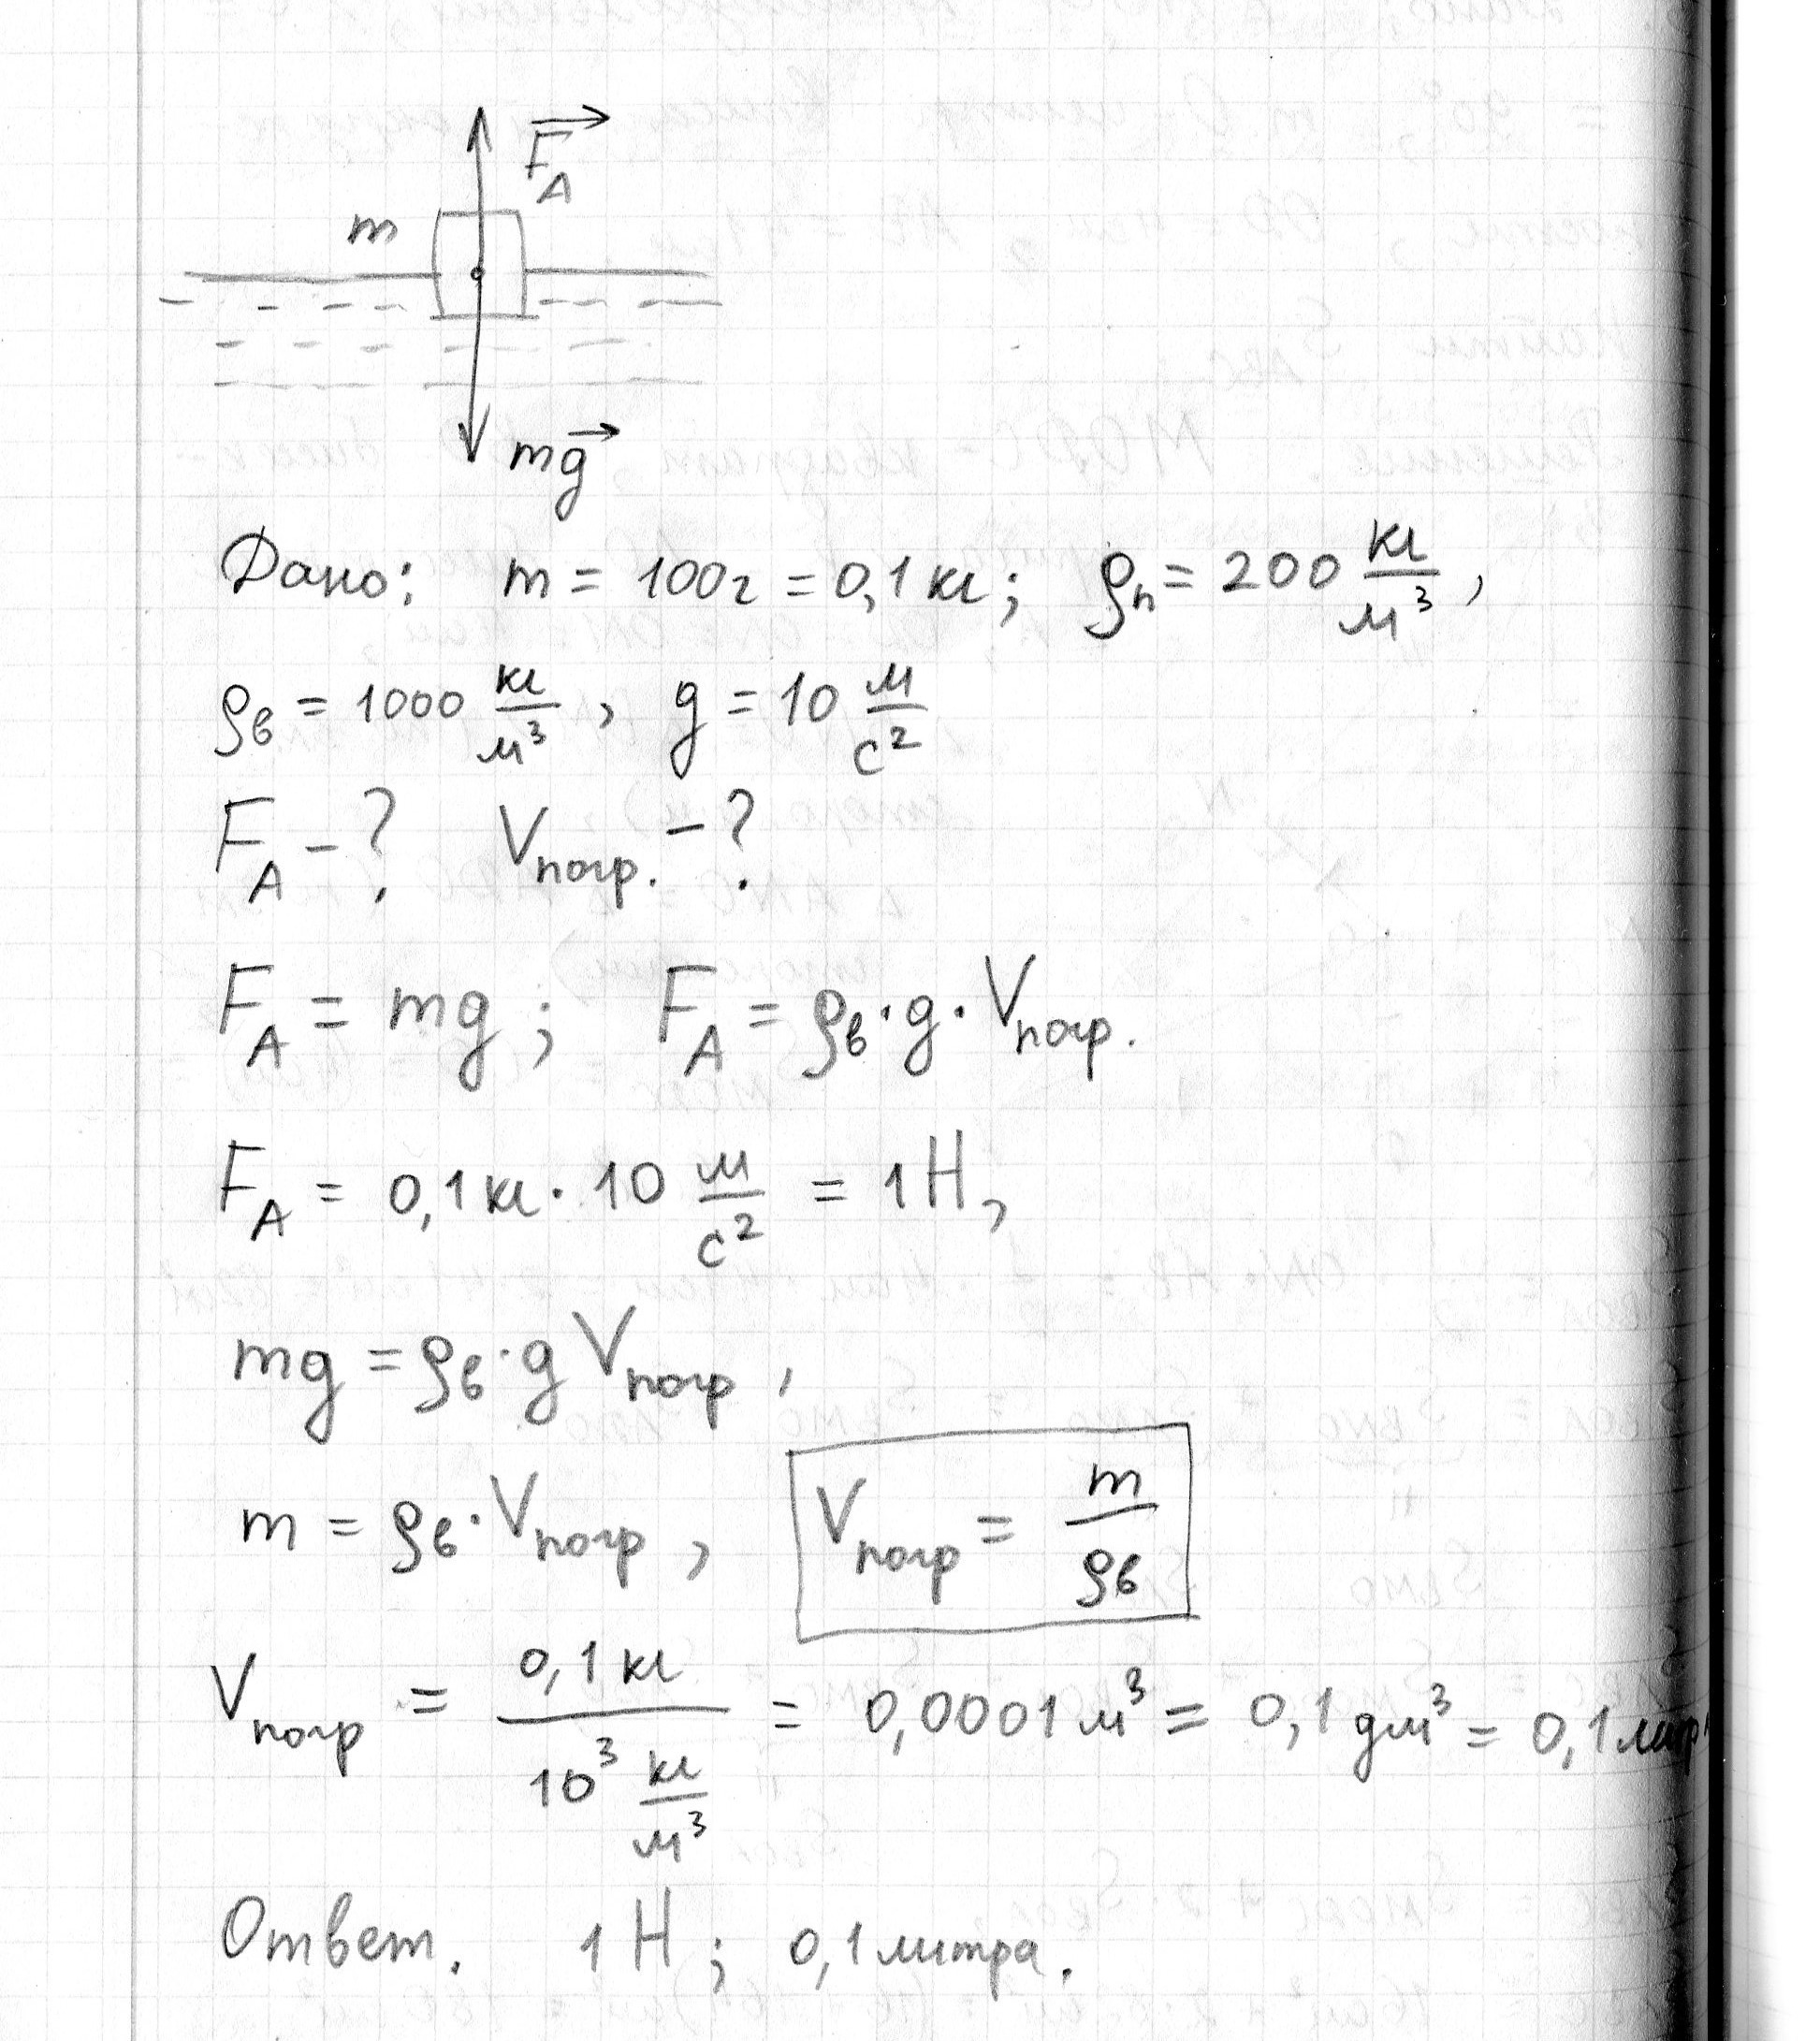 F_A
m
mg
Дано: m = 100г = 0,1 кг; ρп = 200 кг/м³,
ρв = 1000 кг/м³, g = 10 м/с²
F_A – ? Vпогр. – ?
F_A = mg; F_A = ρв · g · Vпогр.
F_A = 0,1 кг · 10 м/с² = 1 Н,
mg = ρв · g Vпогр,
m = ρв · Vпогр, Vпогр = m/ρв
Vпогр = 0,1 кг / 10³ кг/м³ = 0,0001 м³ = 0,1 дм³ = 0,1 литр
Ответ. 1 Н; 0,1 литра.